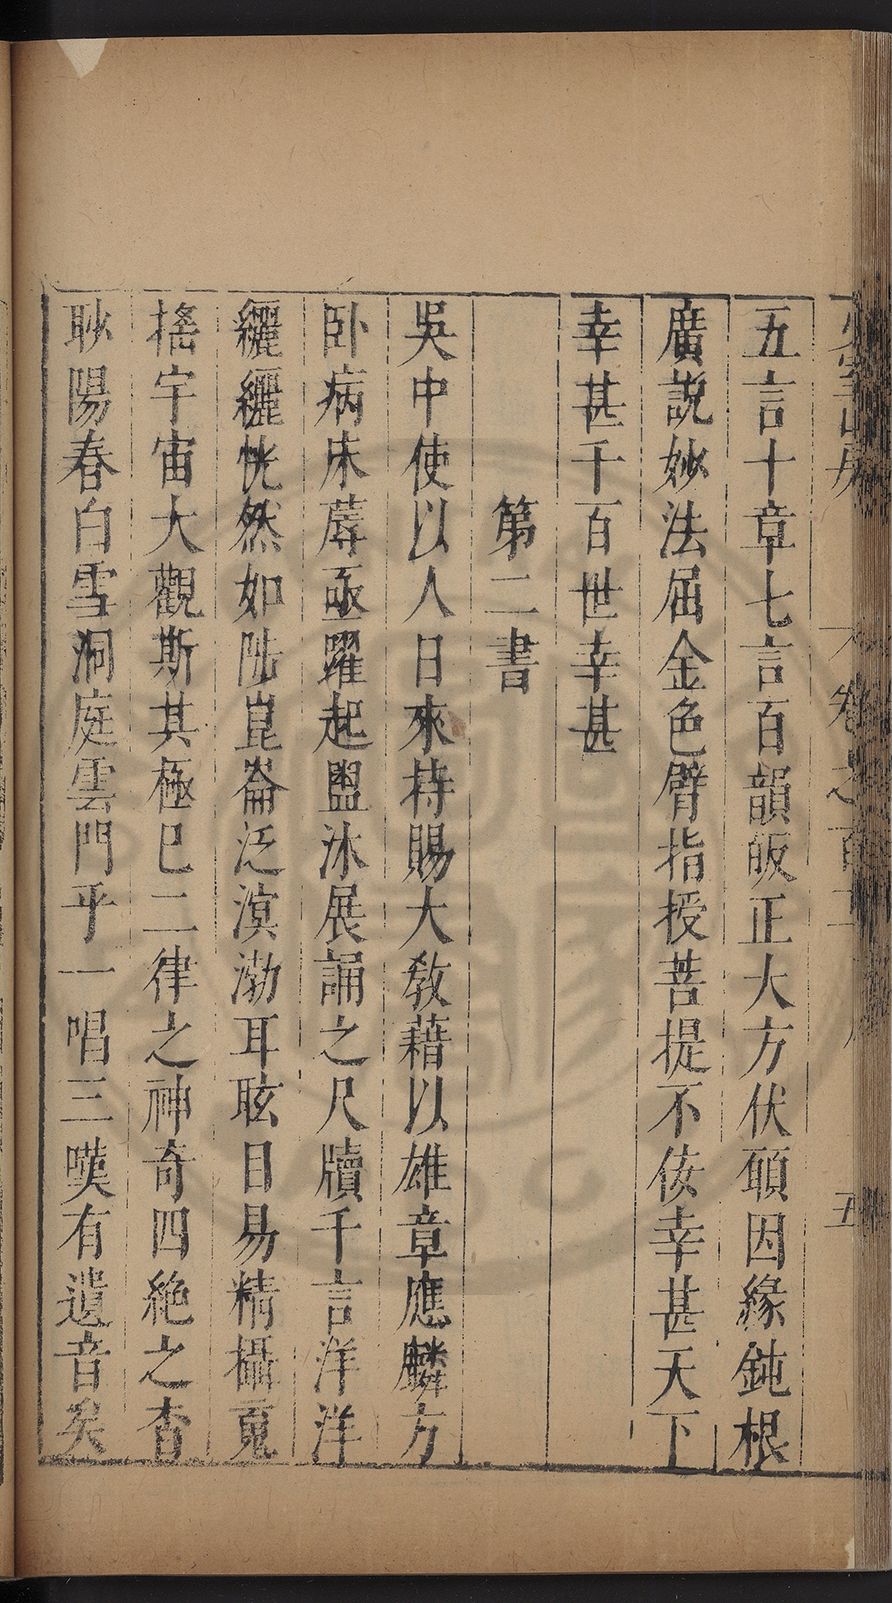 五言十章七言百韻皈正大方伏願因緣鈍根
廣説妙法屈金色臂指授菩提不佞幸甚天下
幸甚千百世幸甚
第二書
吳中使以人日來持賜大教藉以雄章應麟方
卧病床蓐亟躍起盥沐展誦之尺牘千言洋洋
纚纚恍然如陟崑崙泛溟渤耳眩目易精攝䰟
搖宇宙大觀斯其極已二律之神奇四絶之杳
眇陽春白雪洞庭雲門乎一唱三嘆有遺音矣
卷之百
五